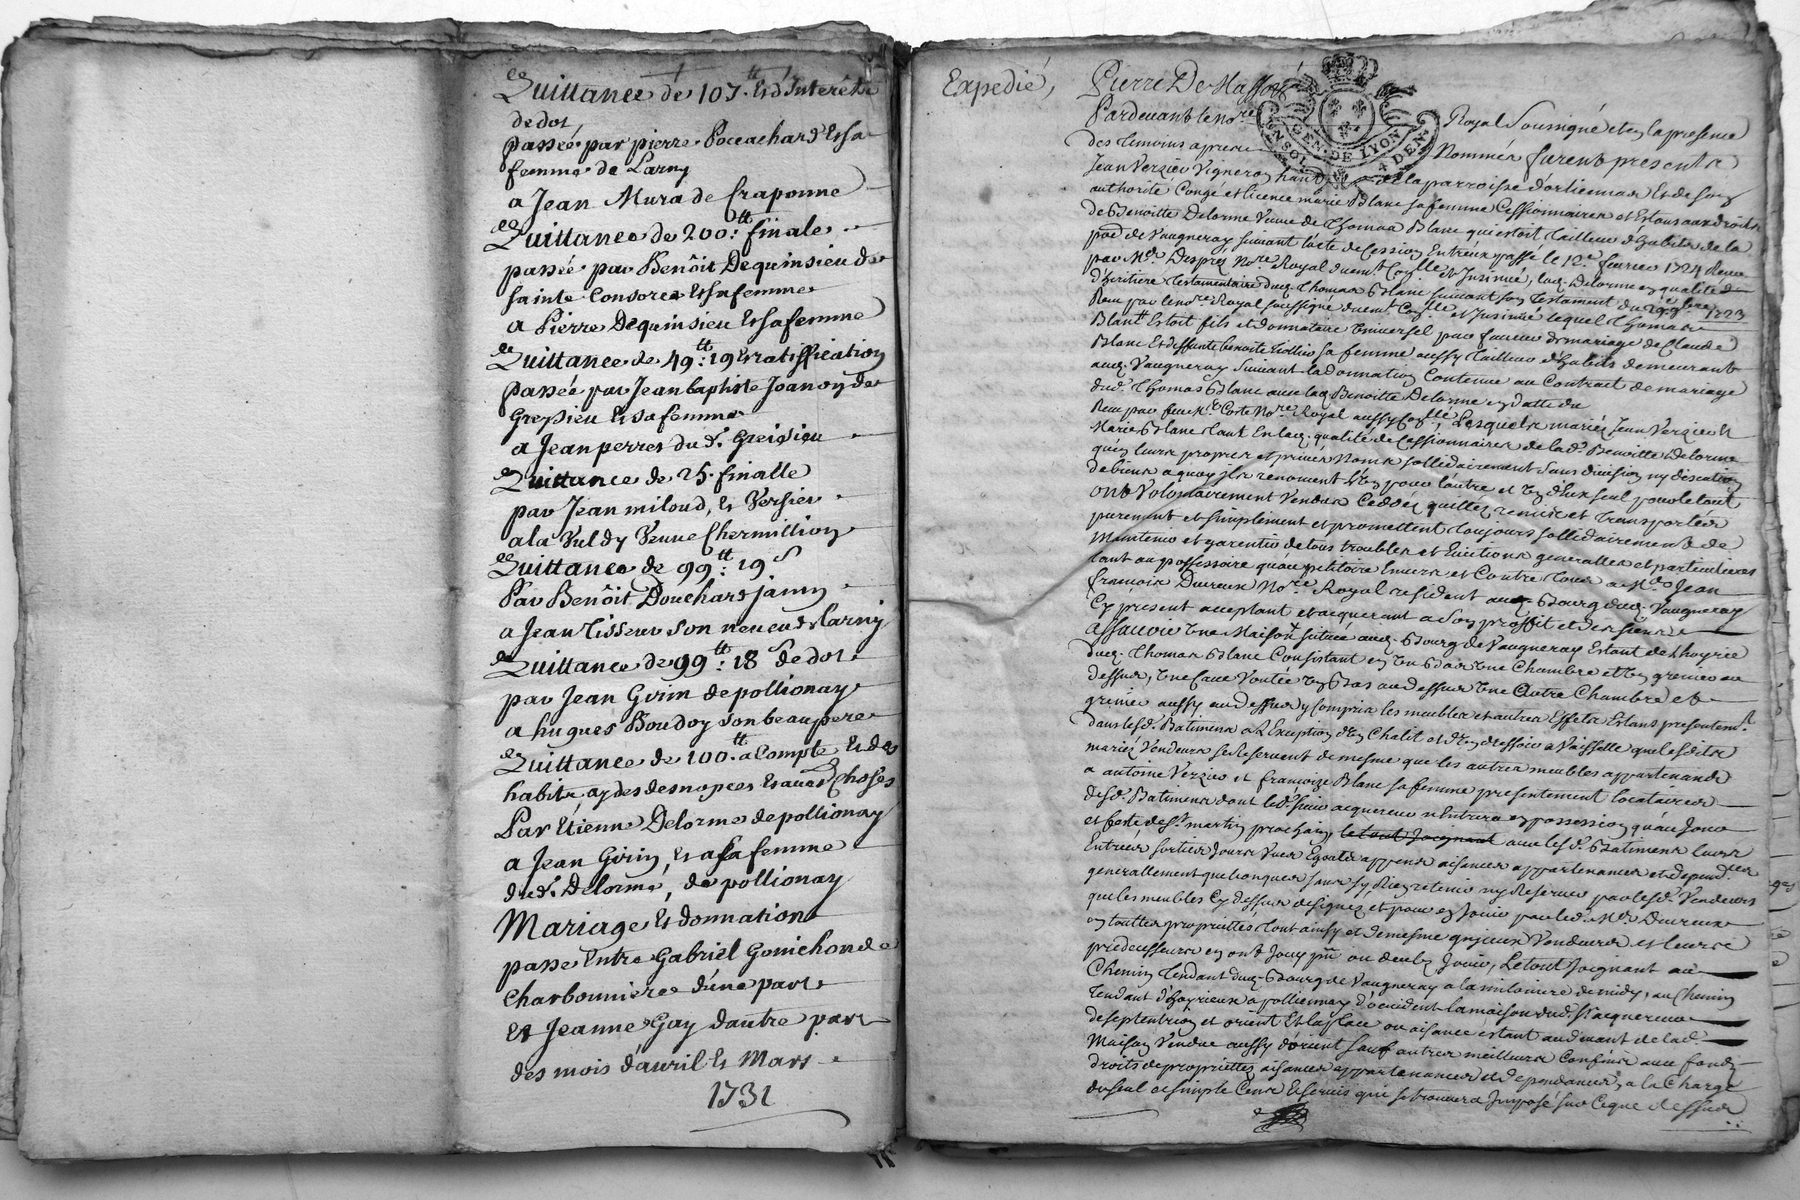 Quittance de 107tt. Et d'Interêts
de dot
passée par pierre Poccachard Et sa
femme de Larny
a Jean Mura de Craponne
Quittance de 200tt. finale
passée par Benôit Dequinsieu de
sainte Consorce Et sa femme
a Pierre Dequinsieu Et sa femme
Quittance de 49tt: 19 Et ratiffication
passée par Jean baptiste Joanon de
Gresieu Et sa femme
a Jean perres du d. Greisieu
Quittance de 25. finalle
par Jean miloud, Et Versier
a la Vuldy Veuve Chermillion
Quittance de 99tt: 19s
Par Benôit Douchars janin
a Jean Tisseur son neveu de Larny
Quittance de 99tt: 18s de dot
par Jean Girin de pollionay
a hugues Boudoy son beaupere
Quittance de 100tt. a Compte Et des
habits aydes des nopces Et aues Choses
Par Etienne Delorme de pollionay
a Jean Girin, Et a sa femme
du d. Delorme, de pollionay
Mariage Et donnation
passé Entre Gabriel Gonichon de
Charbonnieres d'une part
Et Jeanne Gay dautre part
des mois d'avril Et Mars
1731
Expedié,
Pierre De Masso
GEN. DE LYON
Pardevant le Nore Royal Soussigné et en la presence
des temoins apres Nommés furent presents
Jean Verzieu Vigneron habt de la parroisse d'ortiennas Et de son
authorité Congé et licence marie Blanc sa femme Cessionnaires et Estans aux droits
de Benoitte Delorme Veuve de Thomas Blanc qui estoit Tailleur d'habits de la
par de Vaugneray, suivant lacte de Cession Entreux passé le 12e fevrier 1724 Receu
par Me Desprez Nore Royal duemt Conllé et Insinué, laq. Delorme en qualité de
d'heritiere Testamentaire dud. Thomas Blanc suivant son Testament du 1723
Receu par le nore Royal soussigné duemt Conllé et Insinué lequel Thomas
Blanc Estoit fils et donnataire Universel par faveur de mariage de Claude
Blanc Et deffunte benoite sa femme aussy Tailleur d'habits demeurant
aud. Vaugneray suivant la donnation Contenue au Contract de mariage
dud. Thomas Blanc avec laq Benoitte Delorme en datte du
Receu par feu Me Corte Nore Royal aussy Conllé, Lesquels mariés Jean Verzieu Et
Marie Blanc tant En laq. qualité de Cessionnaires de lad. Benoitte Delorme
qu'en leurs propres et privés Noms sollidairement sans division ny discution
de biens a quoy ils renoncent l'un pour l'autre et un d'Eux seul pour le tout
ont Volontairement Vendus Ceddés quittés remis et transportés
purement et simplement et promettent toujours sollidairement de
Maintenir et garentir de tous troubles et Evictions generalles et particulieres
tant au possessoire quau petitoire Envers et Contre tous a Me Jean
françois Dureux Nore Royal resident au Bourg dud. Vaugneray
Cy present acceptant et acquerant a son proffit et des siens
assavoir Une Maison située aud. Bourg de Vaugneray Estant de l'hoyrie
dud. Thomas Blanc Consistant en Un Bas Une Chambre et Un grenier au
dessus, Une Cave Voutée en Bas au dessus Une autre Chambre et
grenier aussy au dessus y Compris les meubles et autres Effets Estans presentemt
dans lesd. Batimens a L'Exception d'un Chalit et d'un dressoir a Vaisselle que lesdits
mariés Vendeurs se Reservent de mesme que les autres meubles appartenants
a antoine Verzieu et françoize Blanc sa femme presentement locataires
desd. Batimens dont led. sieur acquereur n'Entrera en possession qu'au Jour
et feste de St martin prochain, le tout Joignant avec lesd. Batimens leurs
Entrées sorties Jours Vues Egouts appens aisances appartenances et dependces
generallement quelconques sans sy Rien retenir ny Reserver par lesd. Vendeurs
que les meubles Cy dessus designez et pour en Jouir par led. Me Dureux
en toutte proprietté, tout ainsy et de mesme qu'iceux Vendeurs et leurs
predecesseurs en ont Jouy pnt ou deub Jouir, Le tout Joignant au
Chemin Tendant dud. Bourg de Vaugneray a la de midy, au Chemin
Tendant d'hoyrieux a pollionnay d'occident la maison dud. Sr acquereur
de septentrion et orient Et la place ou aisance estant au devant de lad.
Maison Vendue aussy d'orient sauf autres meilleurs Confins avec fonds
droits de propriettez aisances appartenances et dependances, a la Charge
du seul et simple Cens Et servis qui se trouvera Imposé sur Ceque dessus